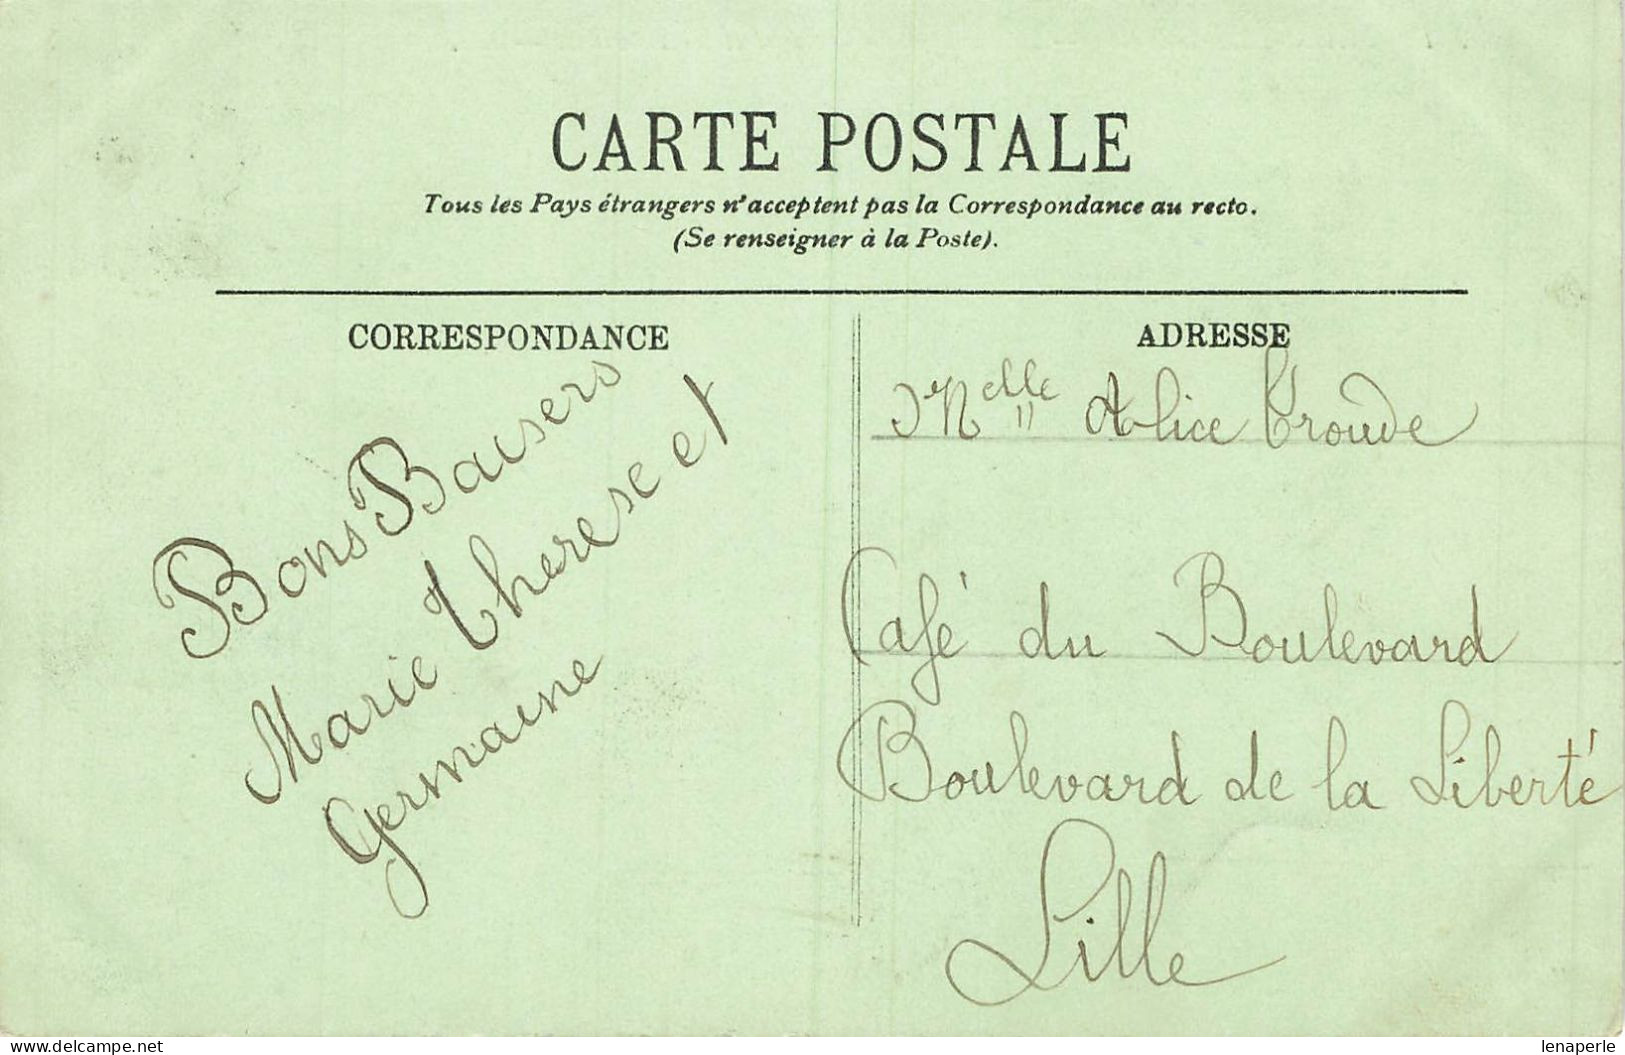 CARTE POSTALE
Tous les Pays étrangers n'acceptent pas la Correspondance au recto.
(Se renseigner à la Poste).
CORRESPONDANCE
Bons Baisers
Marie Therese et
Germaine
ADRESSE
Melle Alice Croude
Café du Boulevard
Boulevard de la Liberté
Lille
www.delcampe.net
lenaperle